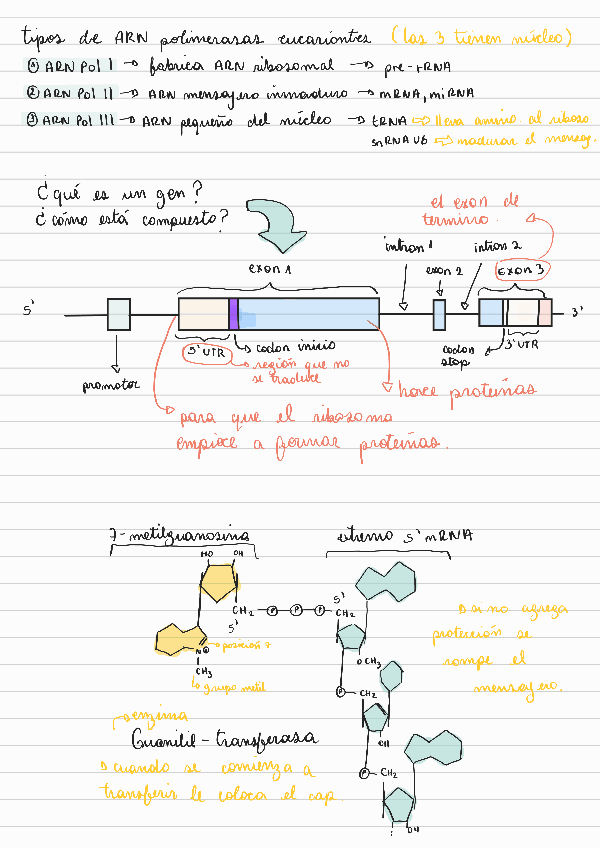 tipos de ARN polimerasas eucariontes (las 3 tienen núcleo)
① ARN Pol I → fabrica ARN ribosomal → pre-rRNA
② ARN Pol II → ARN mensajero inmaduro → mRNA, miRNA
③ ARN Pol III → ARN pequeño del núcleo → tRNA ⇨ lleva amino. al riboso
snRNA U6 ⇨ madurar el mensaj.
¿qué es un gen?
¿cómo está compuesto?
el exon de
termino.
intron 1
intron 2
exon 1
exon 2
exon 3
5'
3'
5' UTR
codon inicio
región que no
se traduce
codon
stop
3' UTR
promotor
hace proteínas
para que el ribosoma
empiece a formar proteínas.
7-metilguanosina
extremo 5' mRNA
HO
OH
CH₂ — P — P — P — CH₂
5'
5'
N⊕
posición 7
CH₃
grupo metil
OCH₃
P — CH₂
OH
P — CH₂
OH
si no agrega
protección se
rompe el
mensajero.
enzima
Guanilil-transferasa
cuando se comienza a
transferir le coloca el cap.